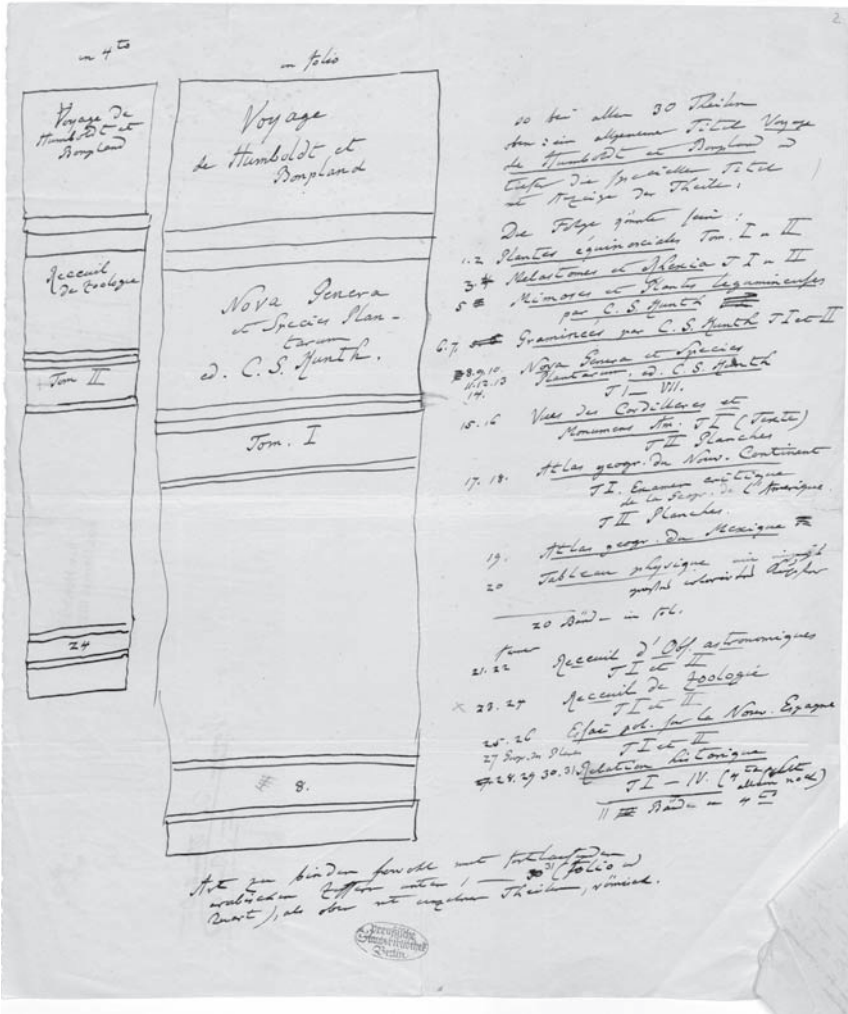 2
in 4to
Voyage de
Humboldt et
Bonpland
Recueil
de Zoologie
Tom II
24
in folio
Voyage
de Humboldt et
Bonpland
Nova Genera
et Species Plan-
tarum
ed. C. S. Kunth.
Tom. I
8.
so bei allen 30 Theilen
oben: ein allgemeiner Titel Voyage
de Humboldt et Bonpland
tiefer die speciellen Titel
Anzeige der Theile:
Die Folge könnte sein:
1.2 Plantes équinoxiales Tom. I u II
3.4 Melastomes et Rhexia T I u II
5 Mimoses et Plantes légumineuses
par C. S. Kunth
6.7. Graminées par C. S. Kunth T I et II
8.9.10 Nova Genera et Species
11.12.13 Plantarum, ed. C. S. Kunth
14. T I — VII.
15.16 Vues des Cordillères et
Monumens Am. T I (Texte)
T II Planches
17. 18. Atlas geogr. du Nouv. Continent
T I. Examen critique
de la Geogr. de l'Amerique.
T II Planches.
19. Atlas geogr. du Mexique
20 Tableau physique
20 Bände in fol.
ferner
21.22 Recueil d'Obs. astronomiques
T I et II
x 23. 24 Recueil de Zoologie
T I et II
25. 26 Essai pol. sur la Nouv. Espagne
27 Geogr. des Plantes T I et II
28. 29 30. 31 Relation historique
T I — IV. (4te fehlt
allein noch)
11 Bände in 4to
Art zu binden sowohl mit fortlaufenden
arabischen Ziffern unten 1 — 31 (folio u
Quart), als oben mit einzelnen Theilen, römisch.
Preußische
Staatsbibliothek
Berlin